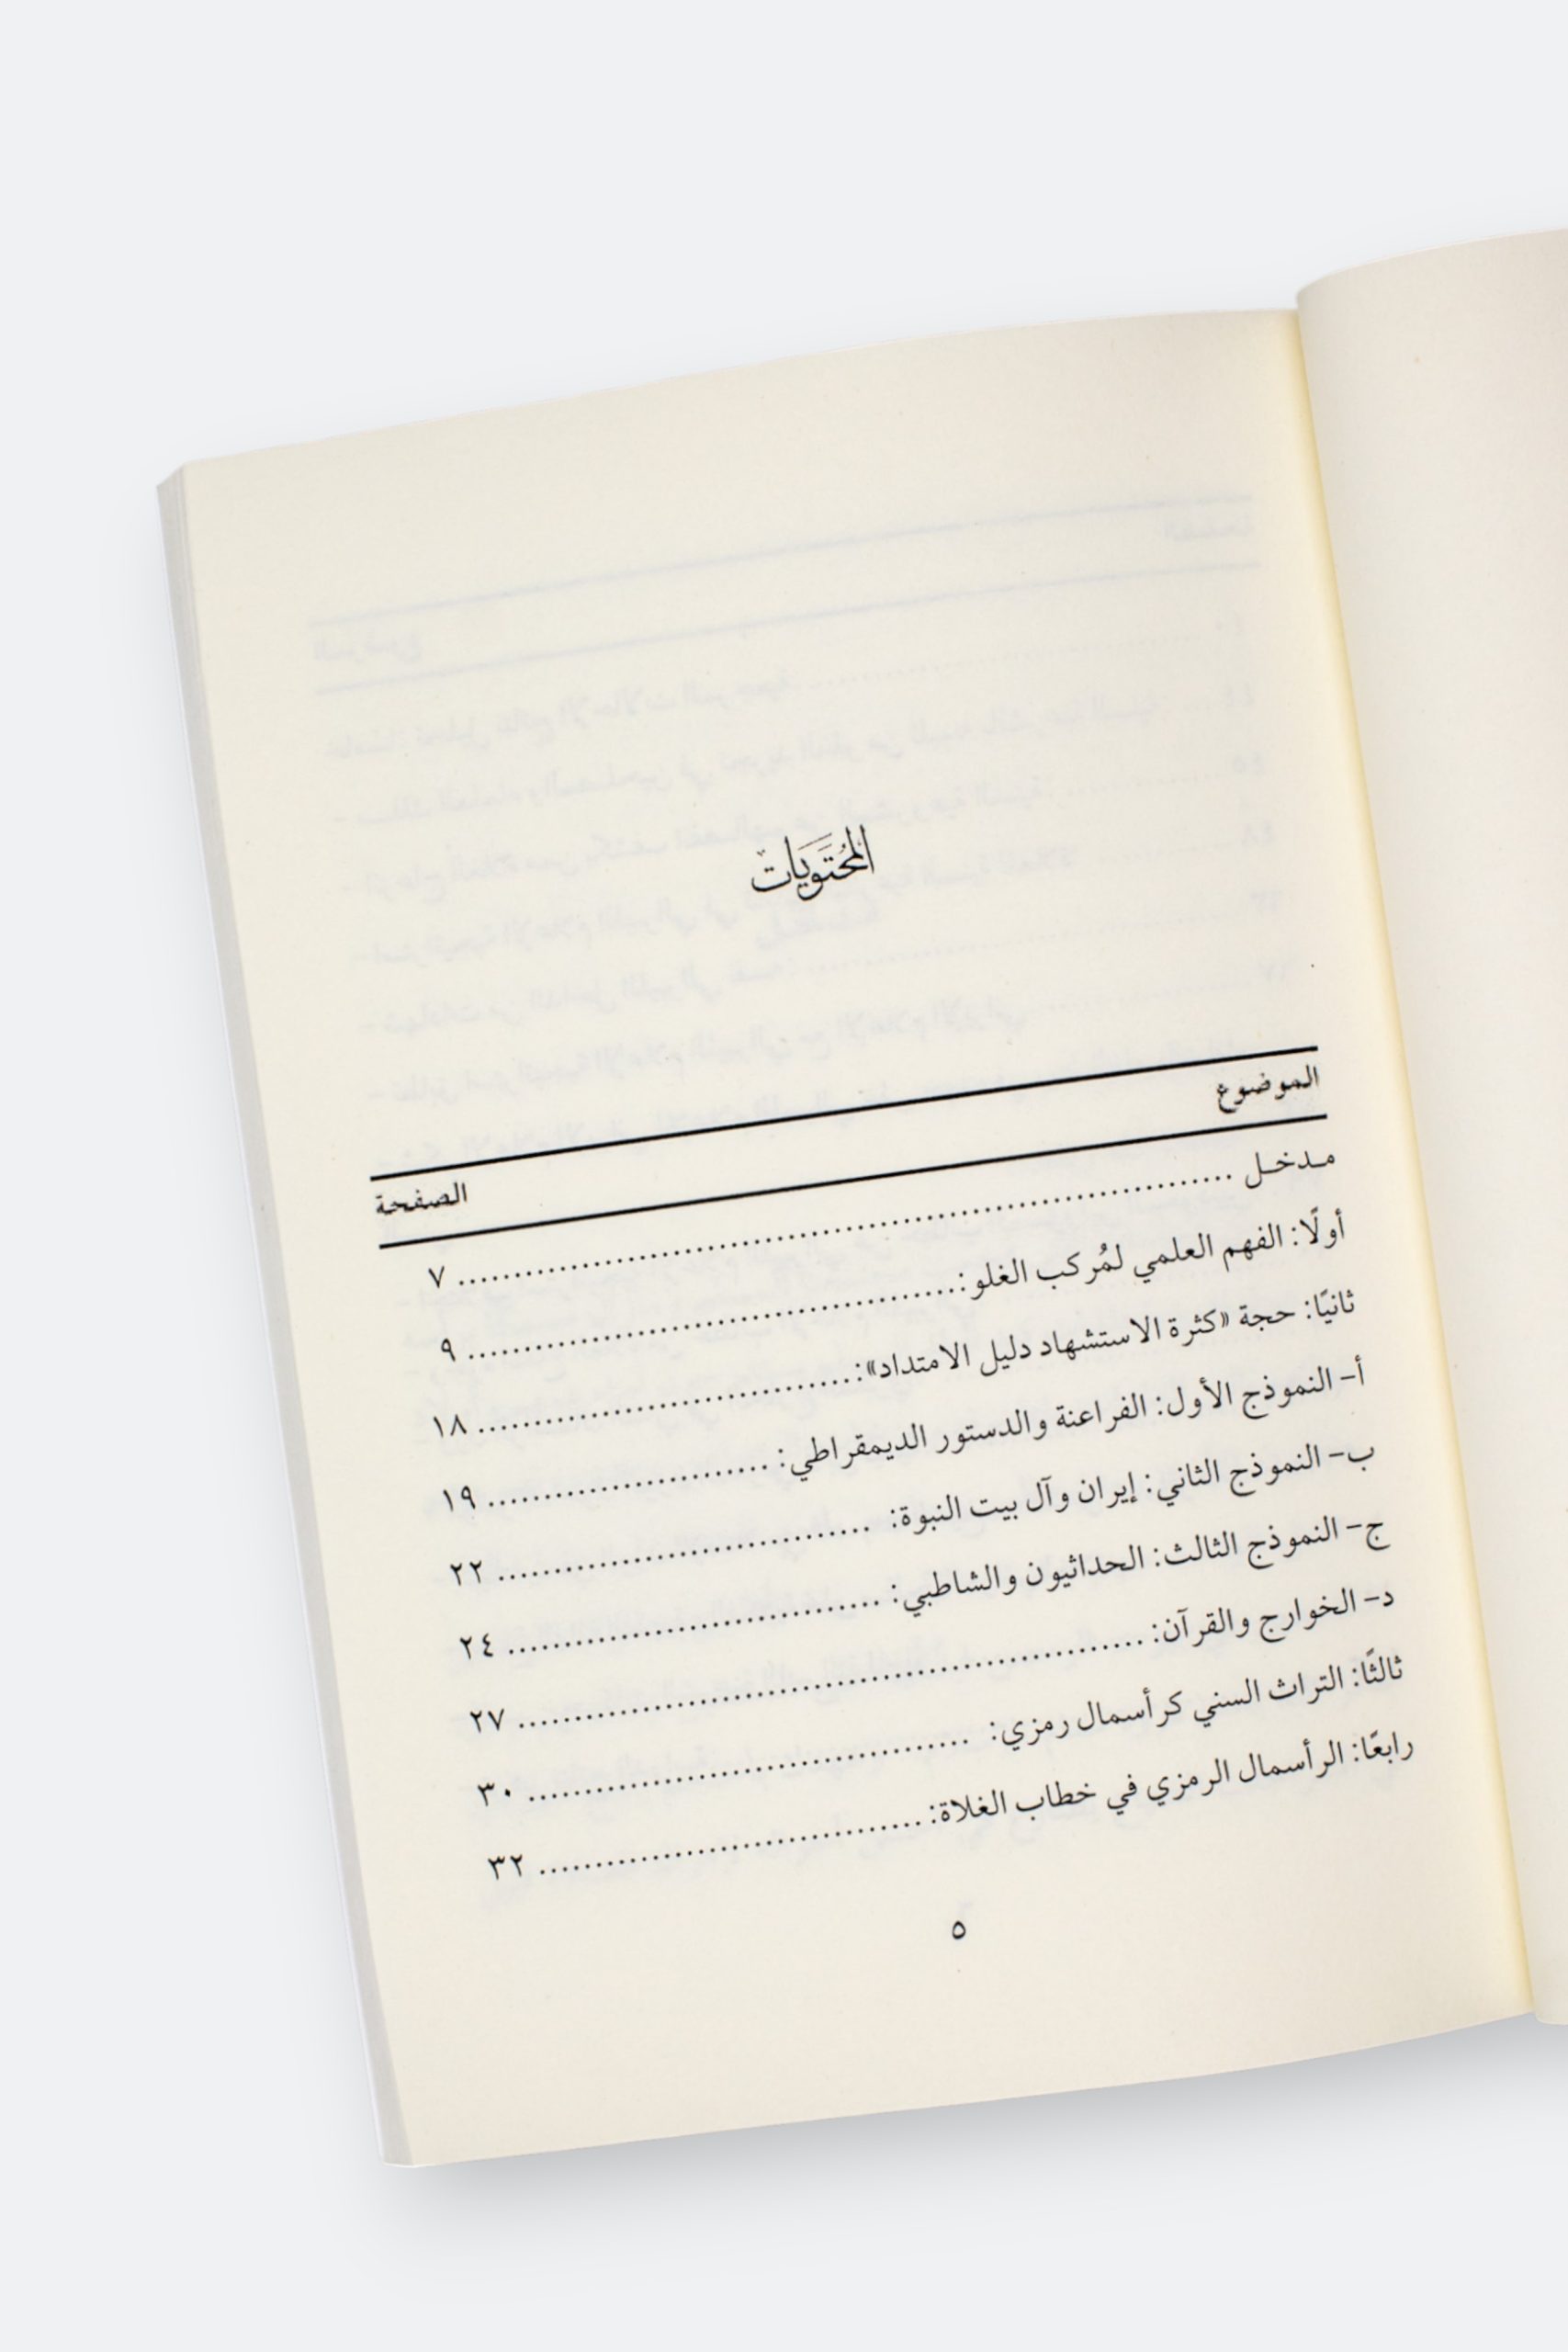 المُحْتَوَيَات
الموضوع الصفحة
مـدخـل ................................ ٧
أولًا: الفهم العلمي لمُركب الغلو: ................................ ٩
ثانيًا: حجة «كثرة الاستشهاد دليل الامتداد»: ................................ ١٨
أ- النموذج الأول: الفراعنة والدستور الديمقراطي: ................................ ١٩
ب- النموذج الثاني: إيران وآل بيت النبوة: ................................ ٢٢
ج- النموذج الثالث: الحداثيون والشاطبي: ................................ ٢٤
د- الخوارج والقرآن: ................................ ٢٧
ثالثًا: التراث السني كرأسمال رمزي: ................................ ٣٠
رابعًا: الرأسمال الرمزي في خطاب الغلاة: ................................ ٣٢
٥